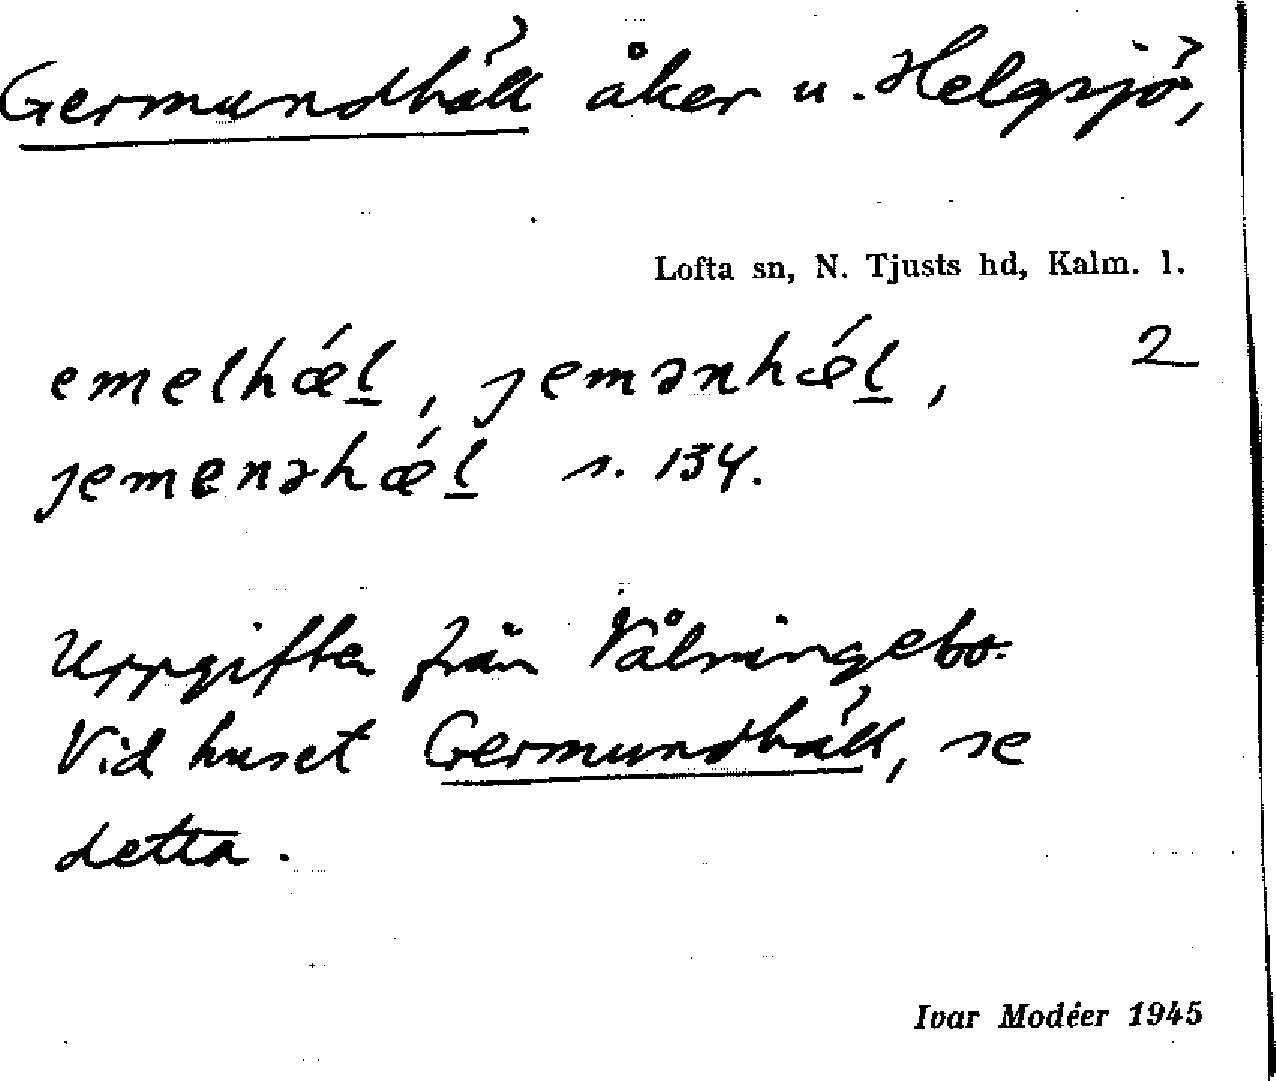 Germundhäll åker u. Helgsjö,
Lofta sn, N. Tjusts hd, Kalm. l.
emelhǽl̲, jemənhǽl̲, 2
jemenəhǽl̲ s. 134.
Uppgifter från Vålningebo.
Vid huset Germundhäll, se
detta.
Ivar Modéer 1945